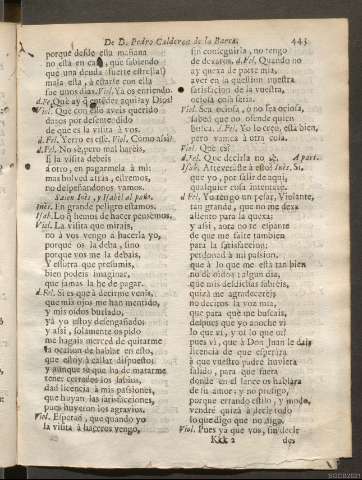 De D. Pedro Calderon de la Barca. 443
porque desde esta mañana
no está en casa, que sabiendo
que una deuda (fuerte estrella!)
mala está, á estarse con ella
fue unos dias. Viol. Ya os entiendo.
d.Fel. Qué ay q̃ entēder aqui (ay Dios!
Viol. Que con esso aveis querido
datos por desentendido
de que es la visita à vos.
d.Fel. Yerro es esse. Viol. Como assi?
d.Fel. No sè, pero mal haceis,
si la visita debeis
à otro, en pagarmela à mi:
mas bolved atràs, esforemos,
no despeñandonos vamos.
Salen Inès, y Isabèl al paño.
Inès. En grande peligro estamos.
Isab. Lo q̃ hemos de hacer pensemos.
Viol. La visita que mirais,
no à vos vengo à hacerla yo,
porque os la deba, sino
porque vos me la debais.
Y estorra que presumis,
bien podeis imaginar,
que jamas la he de pagar.
d.Fel. Si es que à decirme venis,
que mis ojos me han mentido,
y mis oìdos burlado,
yà yo estoy desengañado
y assi, solamente os pido
me hagais merced de quitarme
la ocasion de hablar en esto,
que estoy à callar dispuesto,
y aunque se que ha de matarme
tener cerrados los labios,
dad licencia à mis passiones,
que huyan las satisfacciones,
pues huyeron los agravios.
Viol. Esperad, que quando yo
la visita à haceros vengo,
sin conseguirla, no tengo
de dexaros. d.Fel. Quando no
ay quexa de parte mia,
aver en la question vuestra
satisfacion de la vuestra,
ociosa cosa seria.
Viol. Sea ociosa, o no sea ociosa,
sabed que no ofende quien
busca. d.Fel. Yo lo creo, està bien,
pero vamos à otra cosa.
Viol. Que es?
d.Fel. Que decirla no sè. A part.
Isab. Atreveràste à esto? Inès. Si,
que yo, por salir de aqui,
qualquier cosa intentarè.
d.Fel. Yo tengo un pesar, Violante,
tan grande, que no me dexa
aliento para la quexa:
y assi, aora no te espante
de que me falte tambien
para la satisfaccion:
perdoned à mi passion,
que à lo que me està tan bien
no de oìdos; algun dia,
que mis desdichas sabreis,
quizà me agradecereis
no deciros la voz mia,
que para què me buscais,
despues que yo anoche vi
lo que vi, y oì lo que oì?
pues vì, que à Don Juan le dais
licencia de que esperàra
à que vuestro padre huviera
salido, para que fuera
donde en el lance os hablàra
de su amor; y no prosigo,
porque errando estilo, y modo,
vendrè quizà à decir todo
lo que digo que no digo.
Viol. Pues ya que vos, sin decir
Kkk 2 des